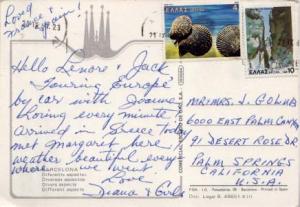 Love
again!
Hello Lenore & Jack
Touring Europe
by car with Joanne
Loving every minute
arrived in Greece today
met Margaret here
weather beautiful every
where we went
Love
Diana & Bob
BARCELONA
Diferents aspectes
Diversos aspectos
Different aspects
Divers aspects
ΕΛΛΑΣ
ΕΛΛΑΣ
10
MR. & MRS. J. GOLUB
6000 EAST PALM CANYON
91 DESERT ROSE DR.
PALM SPRINGS
CALIFORNIA
U.S.A.